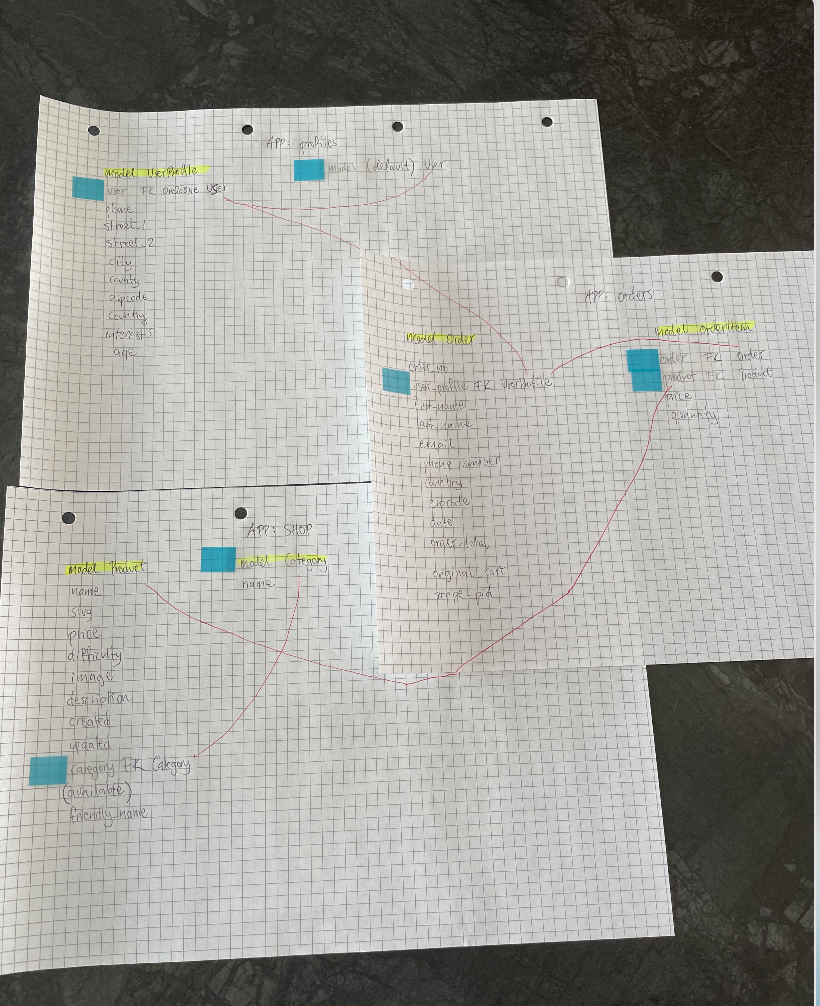 APP: profiles
Model UserProfile
user FK OneToOne User
phone
street_1
street_2
city
county
zipcode
country
interests
age
model (default) User
APP: orders
Model Order
user-profile FK UserProfile
first-name
last_name
email
phone number
country
zipcode
date
original cart
stripe-pid
model OrderItem
order FK Order
product FK Product
price
quantity
APP: SHOP
Model Product
name
slug
price
difficulty
image
description
created
updated
Category FK Category
(available)
friendly_name
Model Category
name